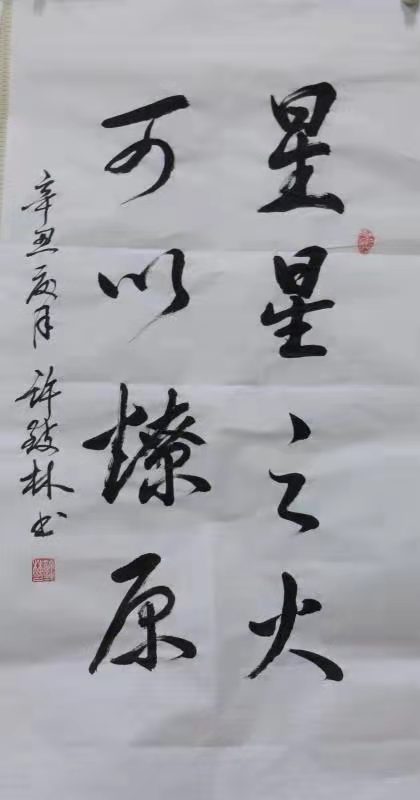 星星之火
可以燎原
辛丑夏月 许致林书